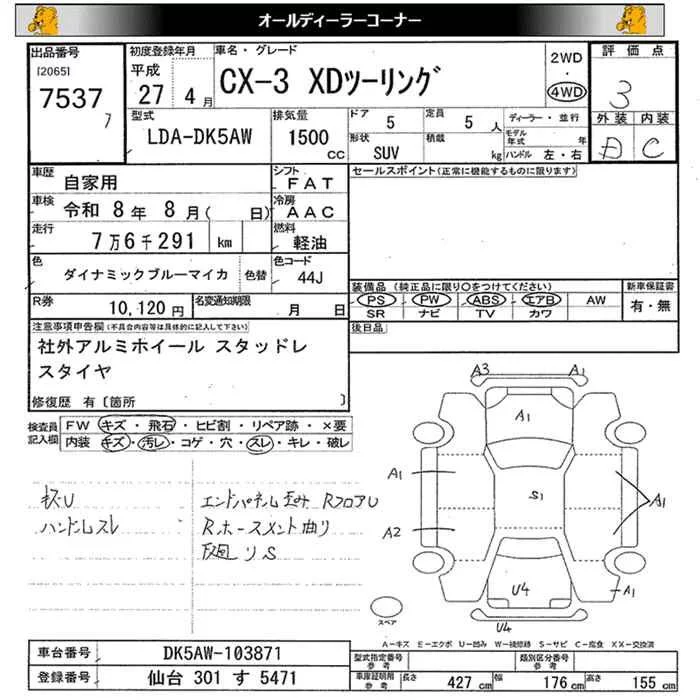 オールディーラーコーナー
出品番号
[2065]
7537
7
初度登録年月
平成
27 4月
車名・グレード
CX-3 XDツーリング
2WD
・
4WD
評価点
3
外装 内装
D C
型式
LDA-DK5AW
排気量
1500
CC
ドア 5
定員 5 人
形状
SUV
積載
kg
ディーラー・並行
モデル年式 年
ハンドル 左・右
車歴
自家用
シフト
FAT
車検
令和 8年 8月( 日)
冷房
AAC
走行
7万6千291 km
燃料
軽油
色
ダイナミックブルーマイカ
色替
色コード
44J
R券
10,120円
名変通知期限
月 日
セールスポイント(正常に機能するものに限ります)
装備品 (純正品に限り○をつけてください)
PS PW ABS エアB AW
SR ナビ TV カワ
新車保証書
有・無
後日品
注意事項申告欄(不具合内容等は具体的に記入して下さい)
社外アルミホイール スタッドレ
スタイヤ
修復歴 有〔箇所 〕
検査員記入欄
FW キズ・飛石・ヒビ割・リペア跡・×要
内装 キズ・汚レ・コゲ・穴・スレ・キレ・破レ
ハンドルスレ
エンドパネル歪み RフロアU
Rホースメント曲り
下廻リS
A3 A1
A1
A1
S1
A1
A2
A1
U4
U4
スペア
A-キズ E-エクボ U-凹み W-補修跡 S-サビ C-腐食 XX-交換済
車台番号 DK5AW-103871
登録番号 仙台 301 す 5471
型式指定番号
参考
類別区分番号
参考
車庫証明用
参考
長さ 427 cm
幅 176 cm
高さ 155 cm